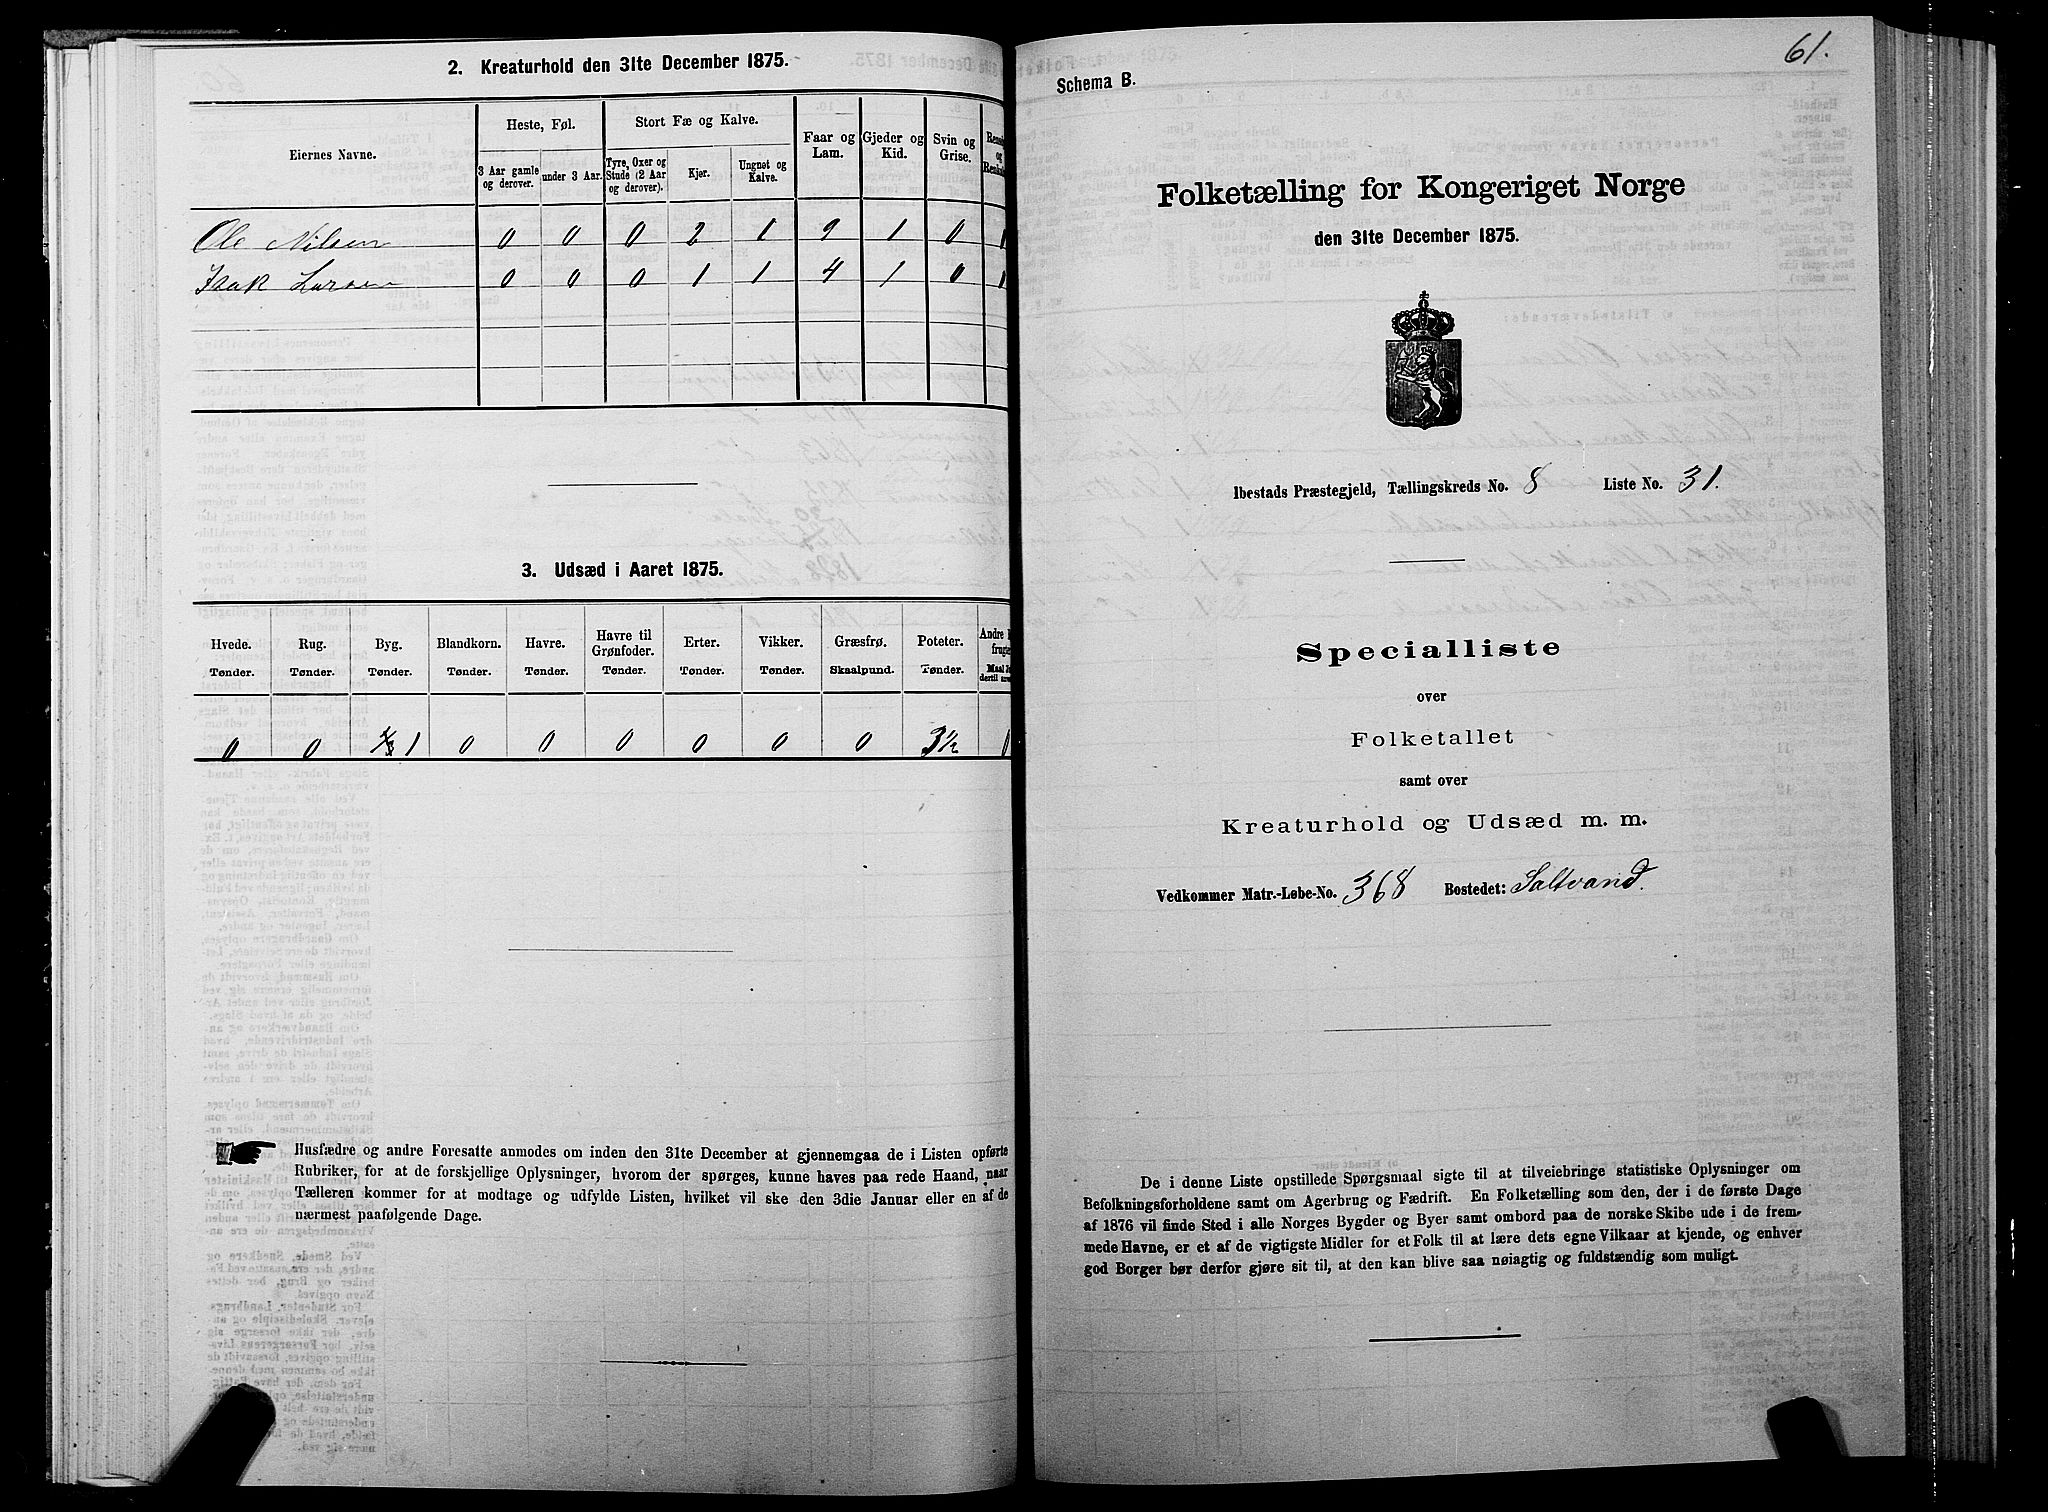 2. Kreaturhold den 31te December 1875.
Eiernes Navne.
Heste, Føl.
Stort Fæ og Kalve.
Faar og Lam.
Gjeder og Kid.
Svin og Grise.
3 Aar gamle og derover.
under 3 Aar.
Tyre, Oxer og Stude (2 Aar og derover).
Kjør.
Ungnøt og Kalve.
Ole Nilsen 0 0 0 2 1 9 1 0 0
Isak Larsen 0 0 0 1 1 4 1 0 0
3. Udsæd i Aaret 1875.
Hvede. Rug. Byg. Blandkorn. Havre. Havre til Grønfoder. Erter. Vikker. Græsfrø. Poteter. Andre
Tønder. Tønder. Tønder. Tønder. Tønder. Tønder. Tønder. Tønder. Skaalpund. Tønder.
0 0 1 0 0 0 0 0 0 3½ 0
Husfædre og andre Foresatte anmodes om inden den 31te December at gjennemgaa de i Listen opførte
Rubriker, for at de forskjellige Oplysninger, hvorom der spørges, kunne haves paa rede Haand, naar
Tælleren kommer for at modtage og udfylde Listen, hvilket vil ske den 3die Januar eller en af de
nærmest paafølgende Dage.
61.
Schema B.
Folketælling for Kongeriget Norge
den 31te December 1875.
Ibestads Præstegjeld, Tællingskreds No. 8 Liste No. 31.
Specialliste
over
Folketallet
samt over
Kreaturhold og Udsæd m. m.
Vedkommer Matr.-Løbe-No. 368 Bostedet: Saltvand.
De i denne Liste opstillede Spørgsmaal sigte til at tilveiebringe statistiske Oplysninger om
Befolkningsforholdene samt om Agerbrug og Fædrift. En Folketælling som den, der i de første Dage
af 1876 vil finde Sted i alle Norges Bygder og Byer samt ombord paa de norske Skibe ude i de frem-
mede Havne, er et af de vigtigste Midler for et Folk til at lære dets egne Vilkaar at kjende, og enhver
god Borger bør derfor gjøre sit til, at den kan blive saa nøiagtig og fuldstændig som muligt.